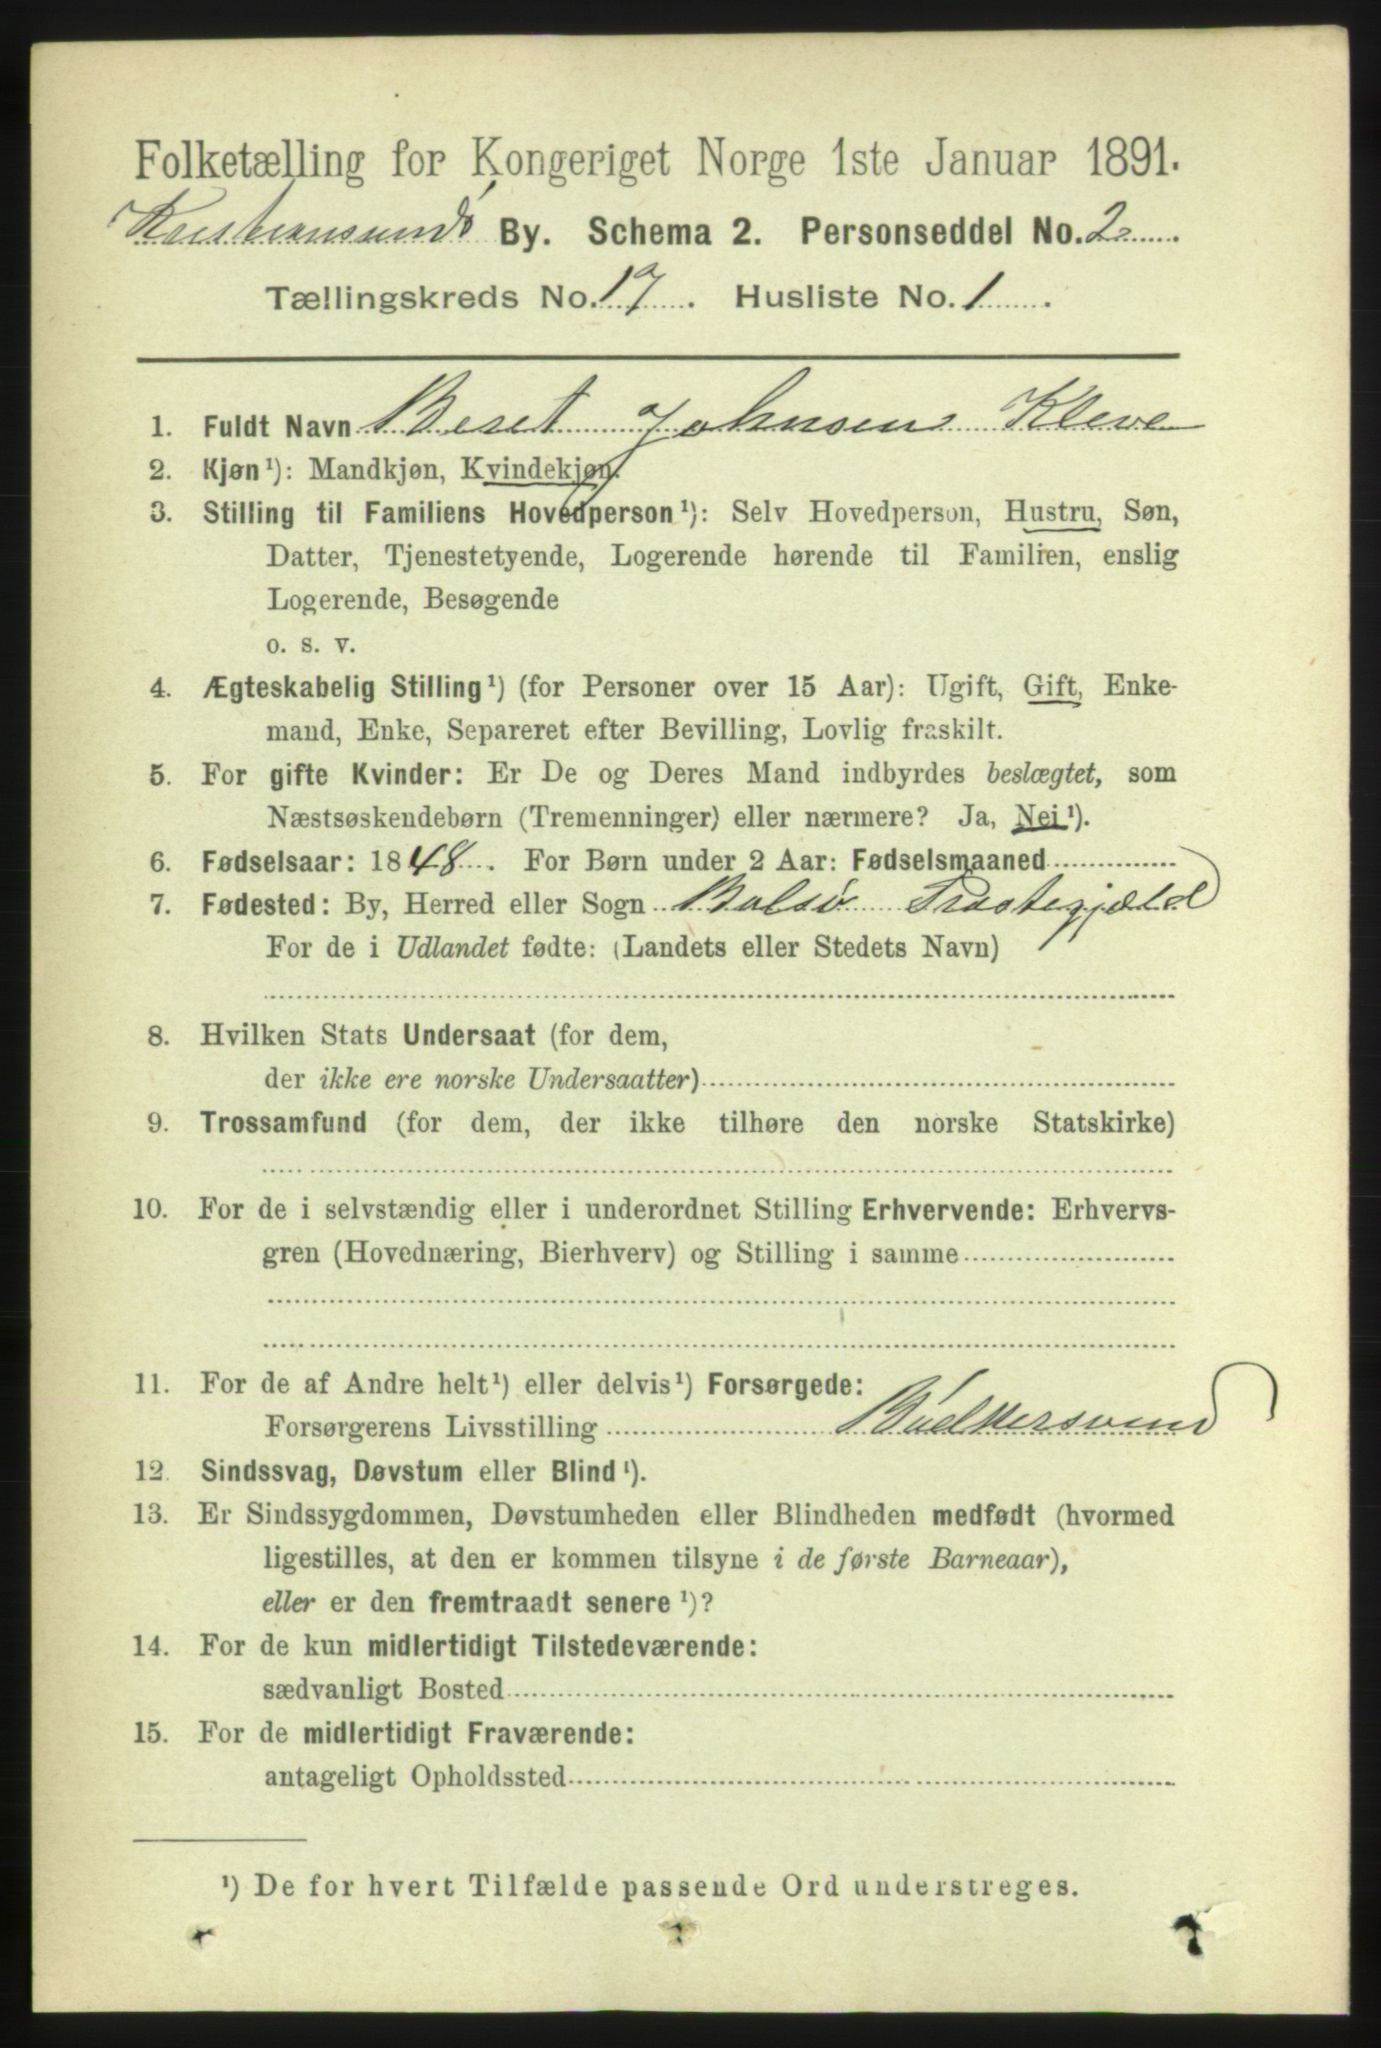 Folketælling for Kongeriget Norge 1ste Januar 1891.
Kristianssunds By. Schema 2. Personseddel No. 2
Tællingskreds No. 17. Husliste No. 1.
1. Fuldt Navn Beret Johnsen Kleve
2. Kjøn¹): Mandkjøn, Kvindekjøn.
3. Stilling til Familiens Hovedperson¹): Selv Hovedperson, Hustru, Søn,
Datter, Tjenestetyende, Logerende hørende til Familien, enslig
Logerende, Besøgende
o. s. v.
4. Ægteskabelig Stilling¹) (for Personer over 15 Aar): Ugift, Gift, Enke-
mand, Enke, Separeret efter Bevilling, Lovlig fraskilt.
5. For gifte Kvinder: Er De og Deres Mand indbyrdes beslægtet, som
Næstsøskendebørn (Tremenninger) eller nærmere? Ja, Nei¹).
6. Fødselsaar: 1848. For Børn under 2 Aar: Fødselsmaaned
7. Fødested: By, Herred eller Sogn Bolsø Præstegjæld
For de i Udlandet fødte: (Landets eller Stedets Navn)
8. Hvilken Stats Undersaat (for dem,
der ikke ere norske Undersaatter)
9. Trossamfund (for dem, der ikke tilhøre den norske Statskirke)
10. For de i selvstændig eller i underordnet Stilling Erhvervende: Erhvervs-
gren (Hovednæring, Bierhverv) og Stilling i samme
11. For de af Andre helt¹) eller delvis¹) Forsørgede:
Forsørgerens Livsstilling Bødkersvend
12. Sindssvag, Døvstum eller Blind¹).
13. Er Sindssygdommen, Døvstumheden eller Blindheden medfødt (hvormed
ligestilles, at den er kommen tilsyne i de første Barneaar),
eller er den fremtraadt senere¹)?
14. For de kun midlertidigt Tilstedeværende:
sædvanligt Bosted
15. For de midlertidigt Fraværende:
antageligt Opholdssted
¹) De for hvert Tilfælde passende Ord understreges.